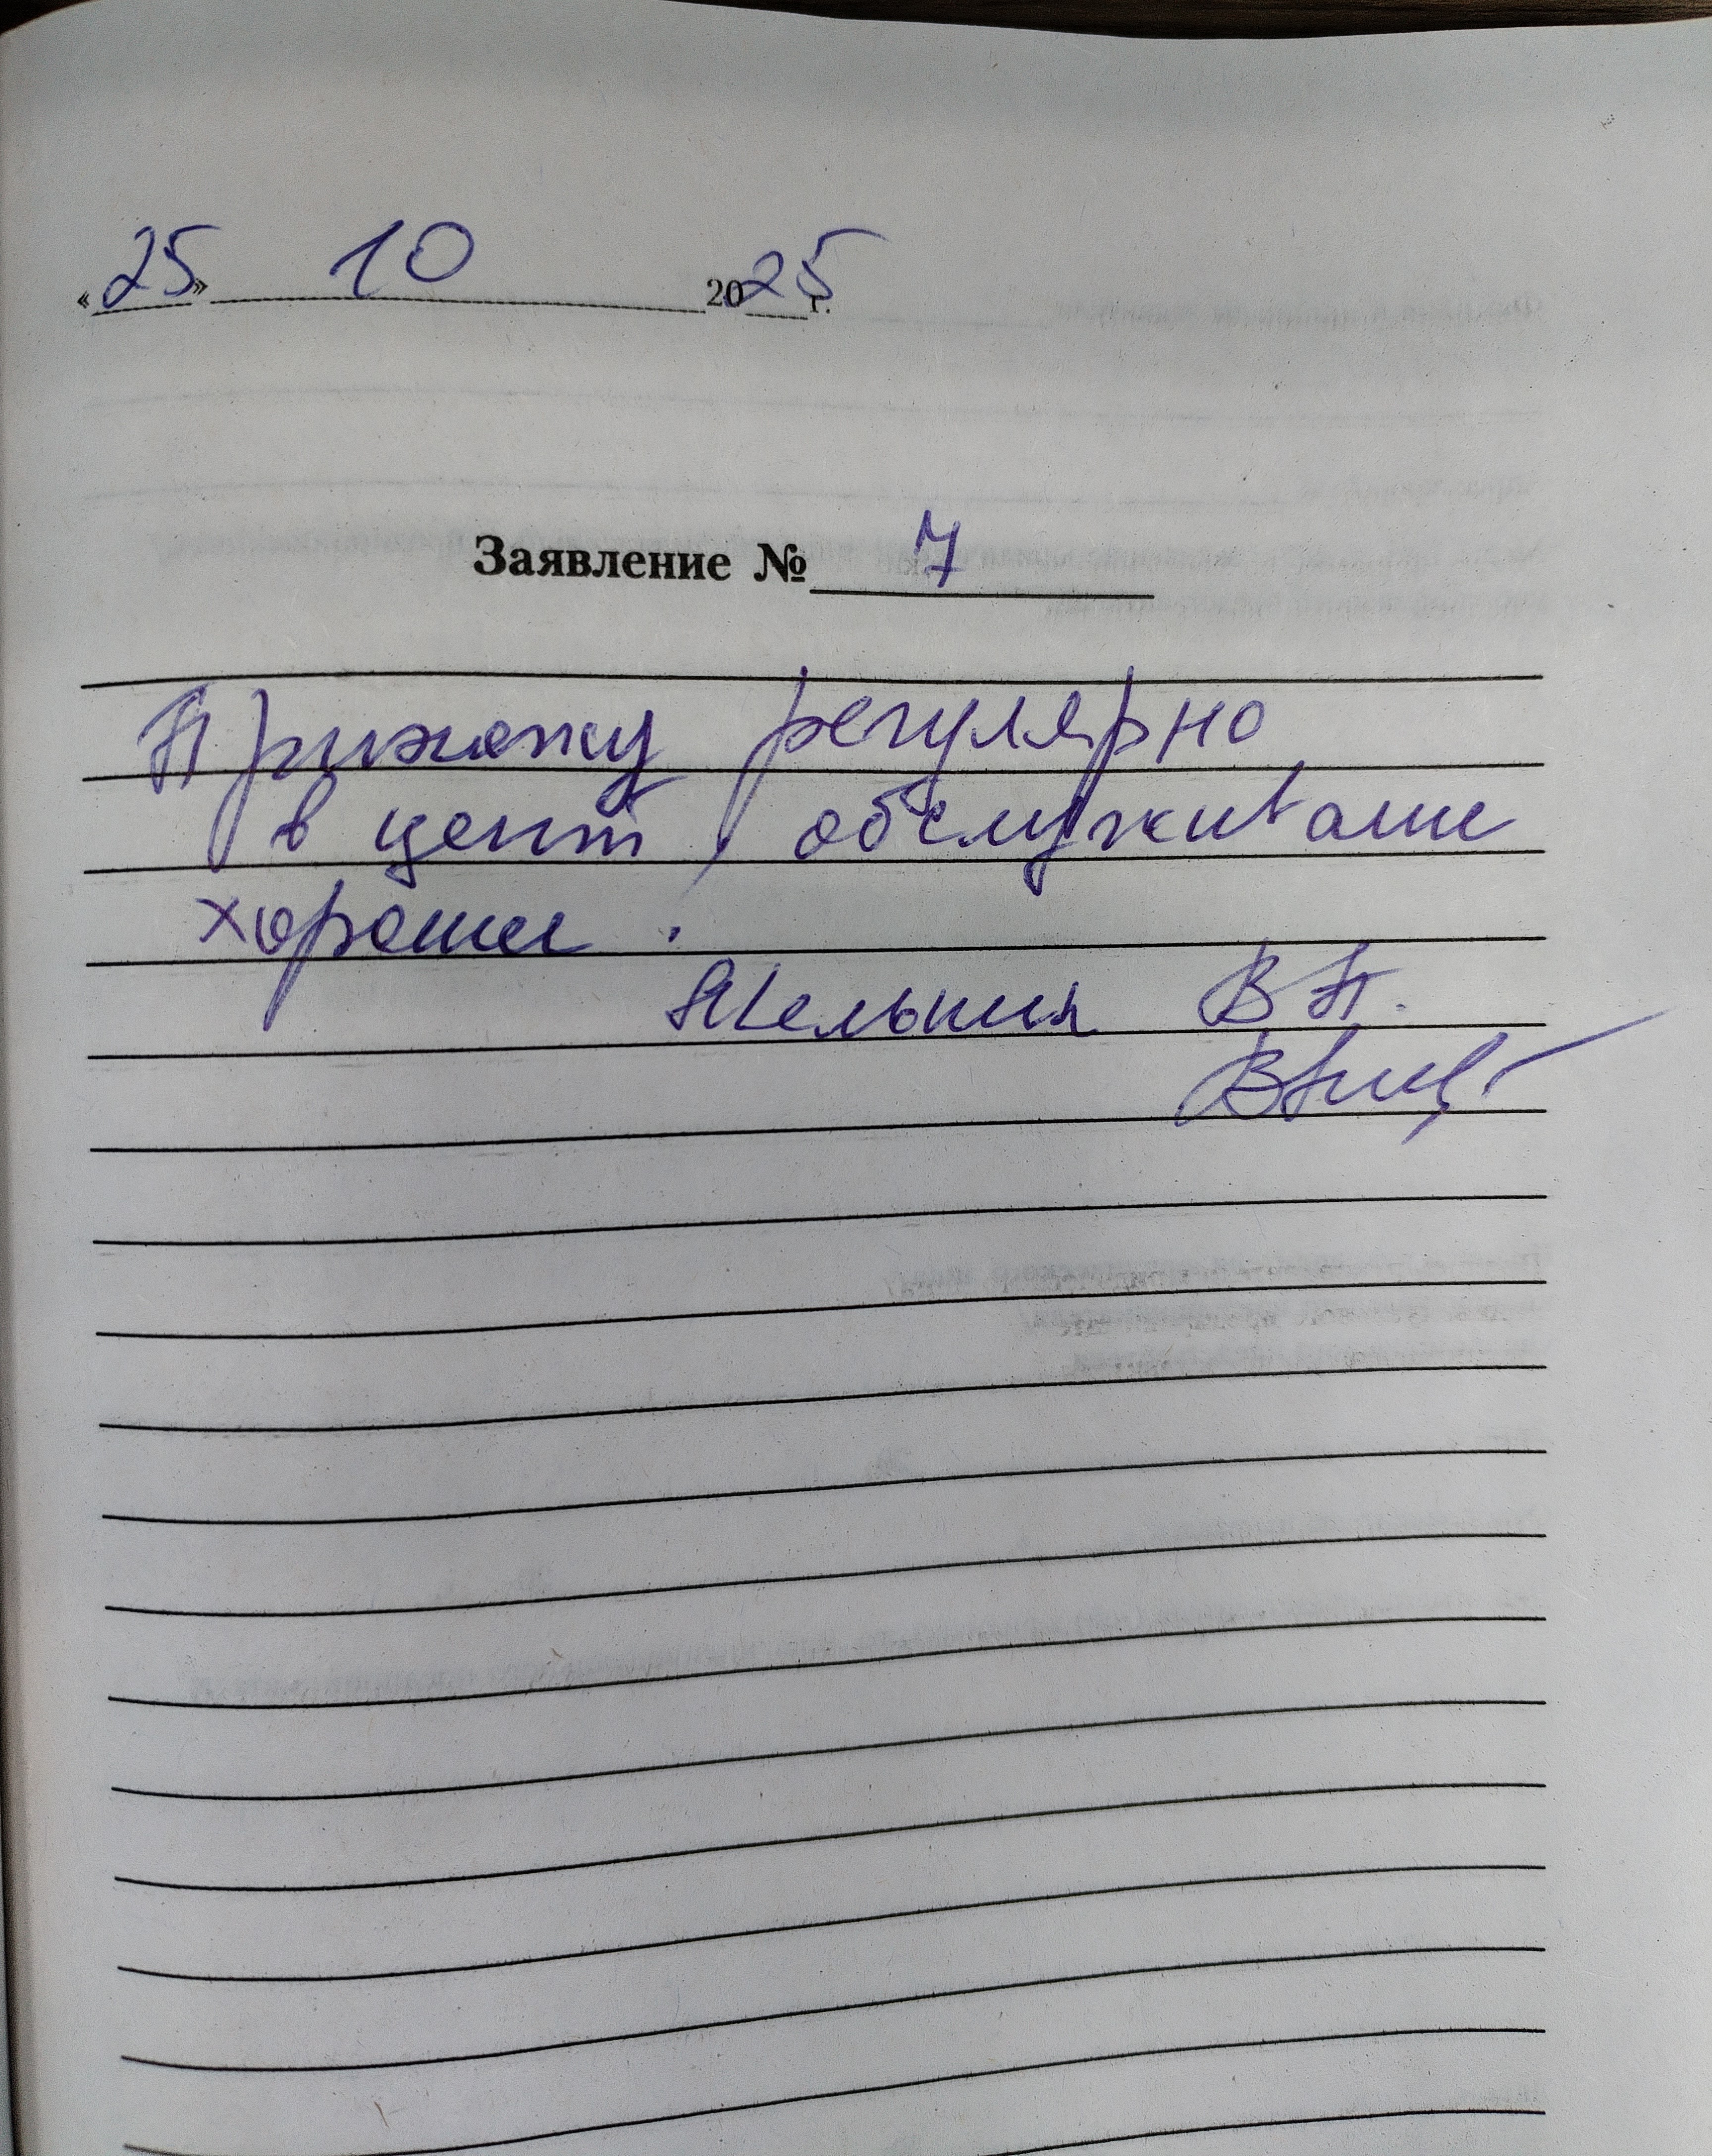 «25» 10 2025 г.
Заявление № 7
Прихожу регулярно
в центр, обслуживание
хорошее.
В П.